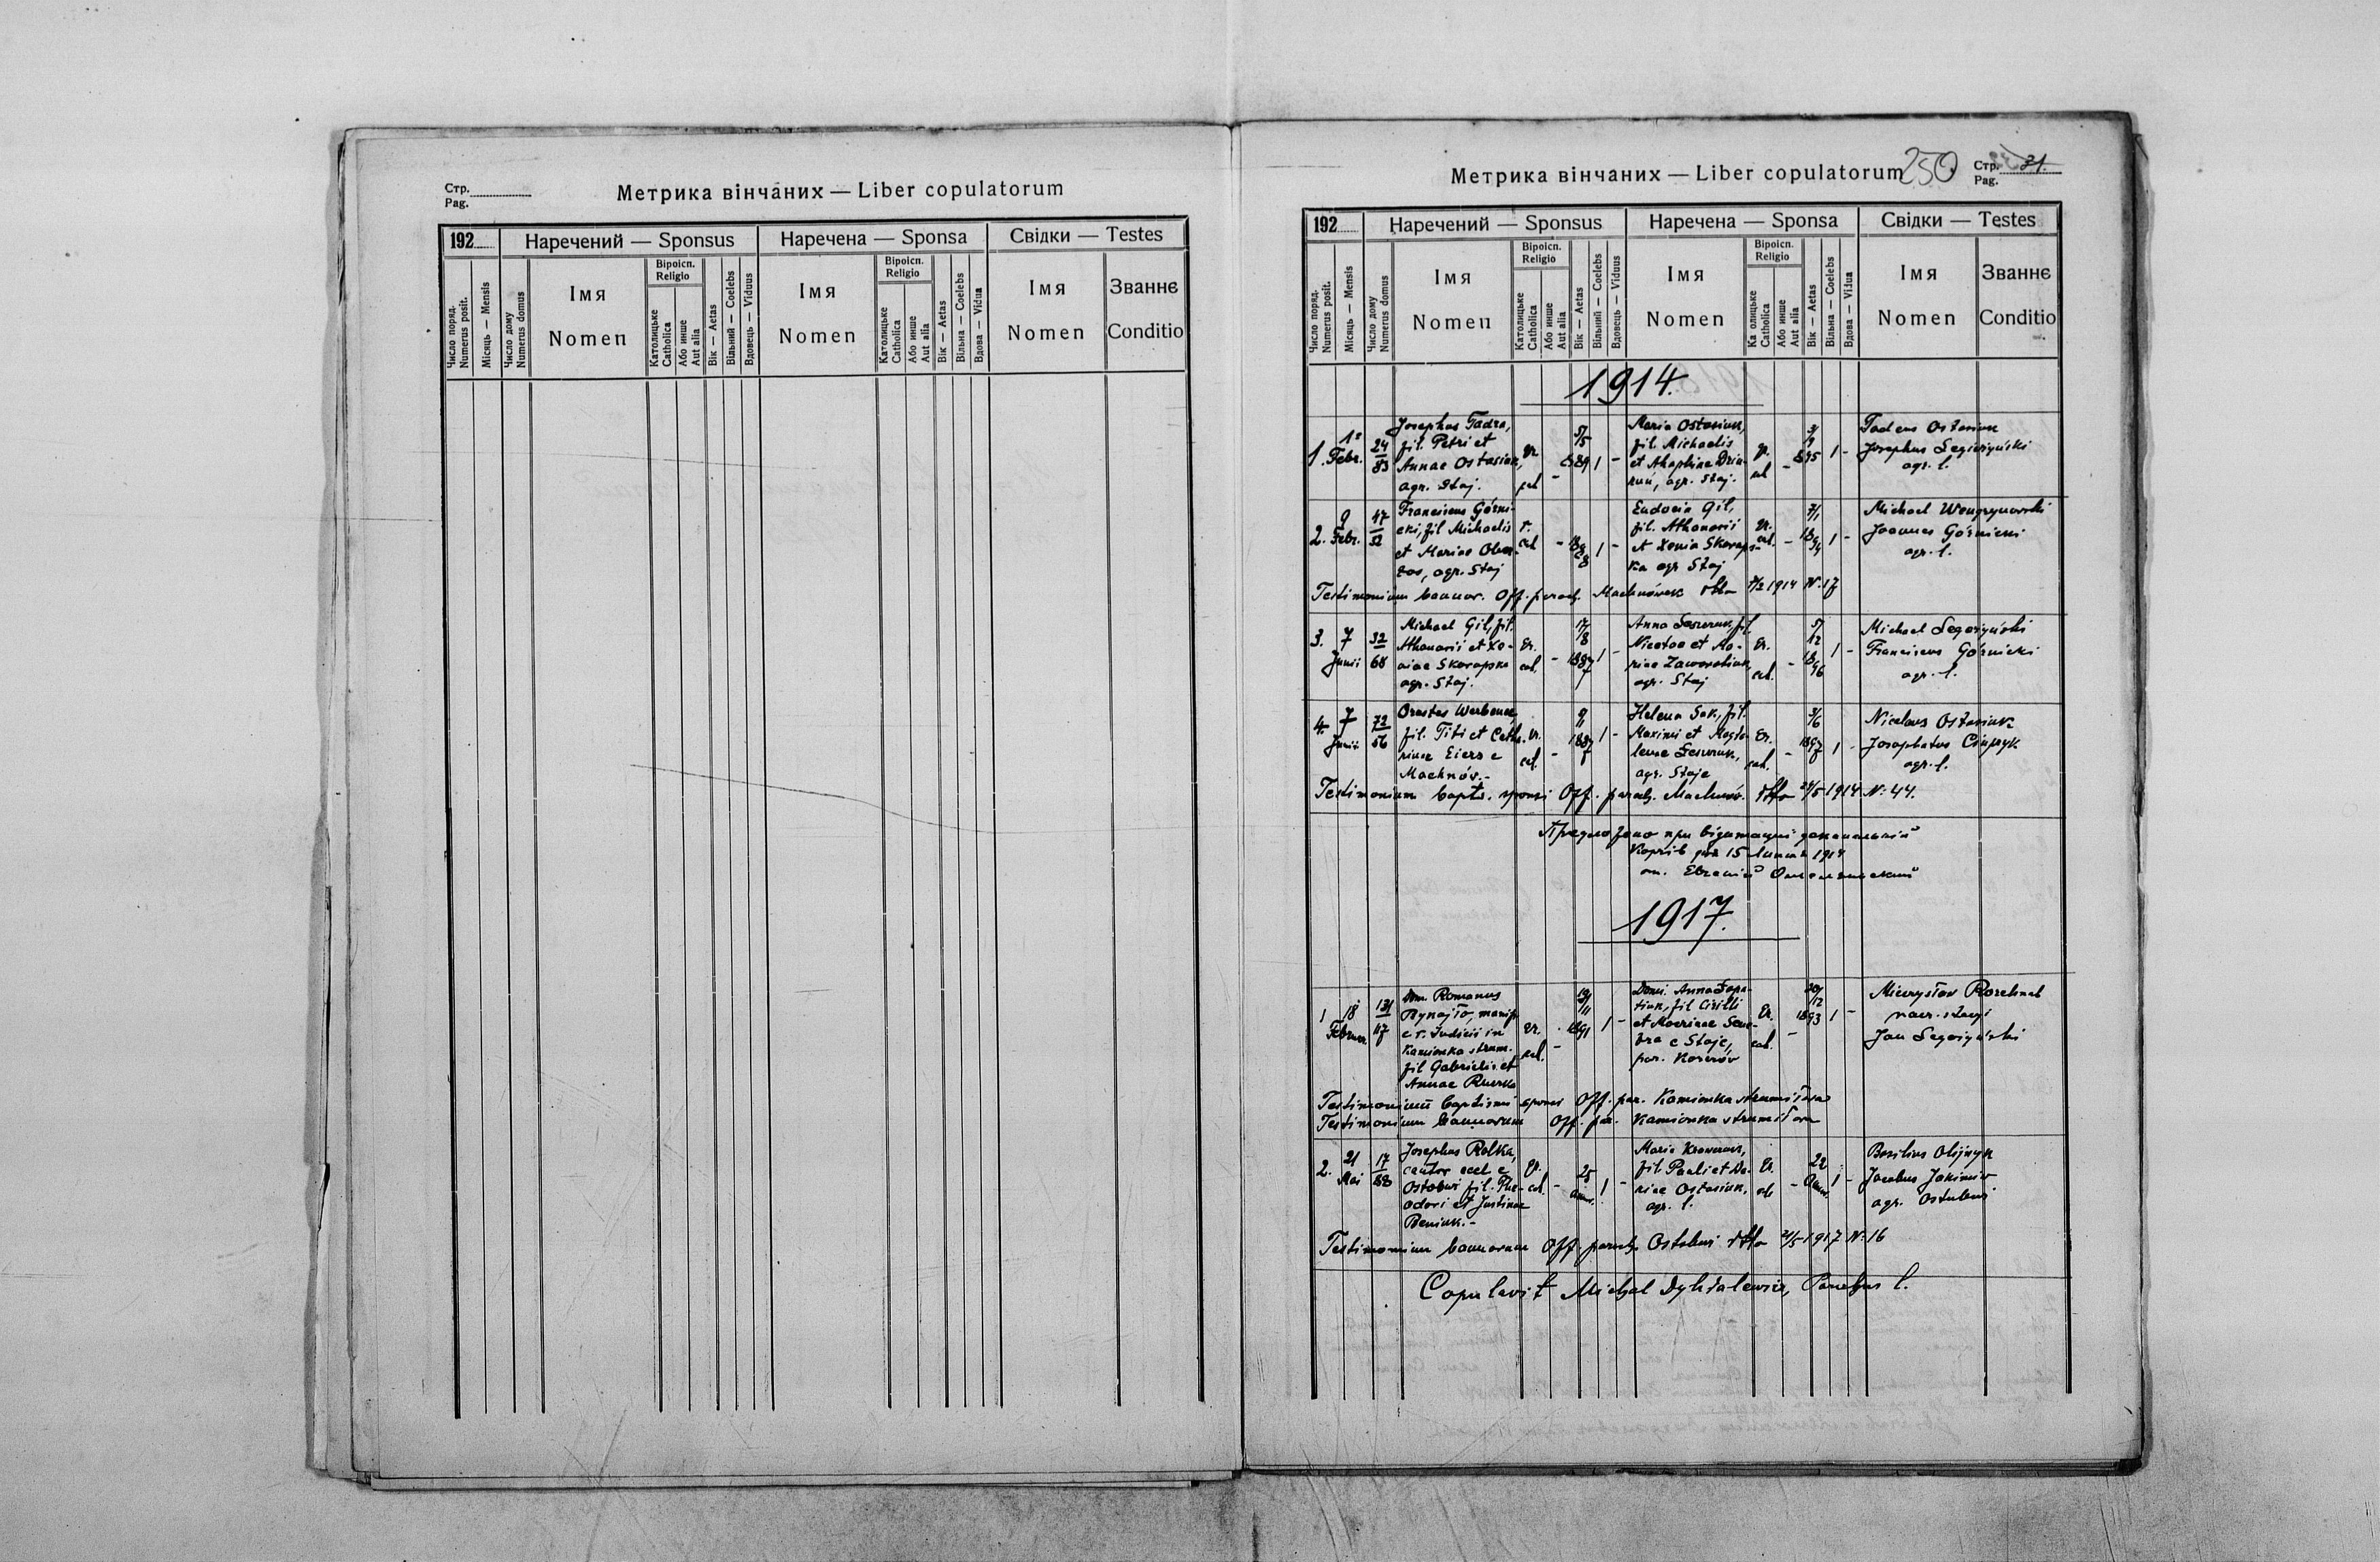 Стр.
Pag.
Метрика вінчаних — Liber copulatorum
192
Наречений — Sponsus
Наречена — Sponsa
Свідки — Testes
Число поряд.
Numerus posit.
Місяць — Mensis
Число дому
Numerus domus
Імя
Nomen
Віроісп.
Religio
Католицьке
Catholica
Або инше
Aut alia
Вік — Aetas
Вільний — Coelebs
Вдовець — Viduus
Імя
Nomen
Віроісп.
Religio
Католицьке
Catholica
Або инше
Aut alia
Вік — Aetas
Вільна — Coelebs
Вдова — Vidua
Імя
Nomen
Званнє
Conditio
Метрика вінчаних — Liber copulatorum
250
Стр.
Pag.
31.
192
Наречений — Sponsus
Наречена — Sponsa
Свідки — Testes
Число поряд.
Numerus posit.
Місяць — Mensis
Число дому
Numerus domus
Імя
Nomen
Віроісп.
Religio
Католицьке
Catholica
Або инше
Aut alia
Вік — Aetas
Вільний — Coelebs
Вдовець — Viduus
Імя
Nomen
Віроісп.
Religio
Ка олицьке
Catholica
Або инше
Aut alia
Вік — Aetas
Вільна — Coelebs
Вдова — Vidua
Імя
Nomen
Званнє
Conditio
1914.
1. Febr.
24
83
Josephus Fadza,
fil. Petri et
Annae Ostasiuk,
agr. Staj.
gr.
cat
5/5
1889 1 -
Maria Ostasiuk,
fil. Michaelis
et
agr. Staj.
gr.
cat
1895 1 -
Tadeus Ostasiuk
Josephus Legieżyński
agr. l.
2.
9
Febr.
47
52
Franciscus Górni-
cki, fil. Michaelis
et Mariae
agr. Staj
r.
cat
1888 1 -
Eudocia Gil,
fil. Athanasii
et Xenia Skoraps-
ka agr Staj
gr.
cat.
7/1
1894 1 -
Michael Wengrynowski
Joannes Górnicki
agr. l.
Testimonium bannor. Off. paroch. Machnówek dtto 8/2 1914 N. 17
3. 7
Junii
32
68
Michael Gil, fil.
Athanasii et Xe-
niae Skorapska
agr. Staj.
Gr.
cat.
17/8
1887 1 -
Anna fil.
Nicolao et Ma-
riae Zaworotiuk,
agr. Staj
Gr.
cat.
5/12
1896 1 -
Michael Legeżyński
Franciscus Górnicki
agr. l.
4. 7
Junii
72
56
Orestes Werbenec,
fil. Titi et Catha-
rinae Eiers e
Machnów. -
Gr.
cat.
9/11
1887 1 -
Helena Sak, fil.
Maximi et Magda-
lenae
agr. Staje
Gr.
cat.
3/6
1897 1 -
Nicolaus Ostasiuk
Josaphatus Ciupryk
agr. l.
Testimonium bapts. sponsi Off. paroch. Machnów. dtto 24/5 1914 N: 44.
Предложено при візитациї деканальній
Корчів дня 15 Липня 1914
от. Евгений
1917.
1
18
Februar.
131
117
Dom. Romanus
Rynajło, manip.
c. r. Judicii in
Kamionka strum.
fil Gabrielis et
Annae
Gr.
cat.
19/11
1891 1 -
Domi. Anna Łapa-
tiuk, fil Cirilli
et Mariae
e Staje,
par. Korczów
Gr.
cat.
29/12
1893 1 -
Mieczysław
nacz. stacyi
Jan Legeżyński
Testimonium baptismi sponsi Off. par. Kamionka strumiłowa
Testimonium bannorum Off. par. Kamionka strumiłowa
2.
21
Mai
17
88
Josephus Rolka,
cantor eccl e
Ostobuż fil. The-
odori et Justinae
Beniuk. -
Gr.
cat.
25
ann. 1 -
Maria
fil. Pauli et Da-
riae Ostasiuk,
agr. l.
Gr.
22
ann. 1 -
Basilius Olijnyk
Jacobus Jakimiw
agr. Ostobuż
Testimonium bannorum Off. paroch. Ostobuż dtto 21/5 1917 N: 16
Copulavit Michał Dyhdalewicz, Parochus l.